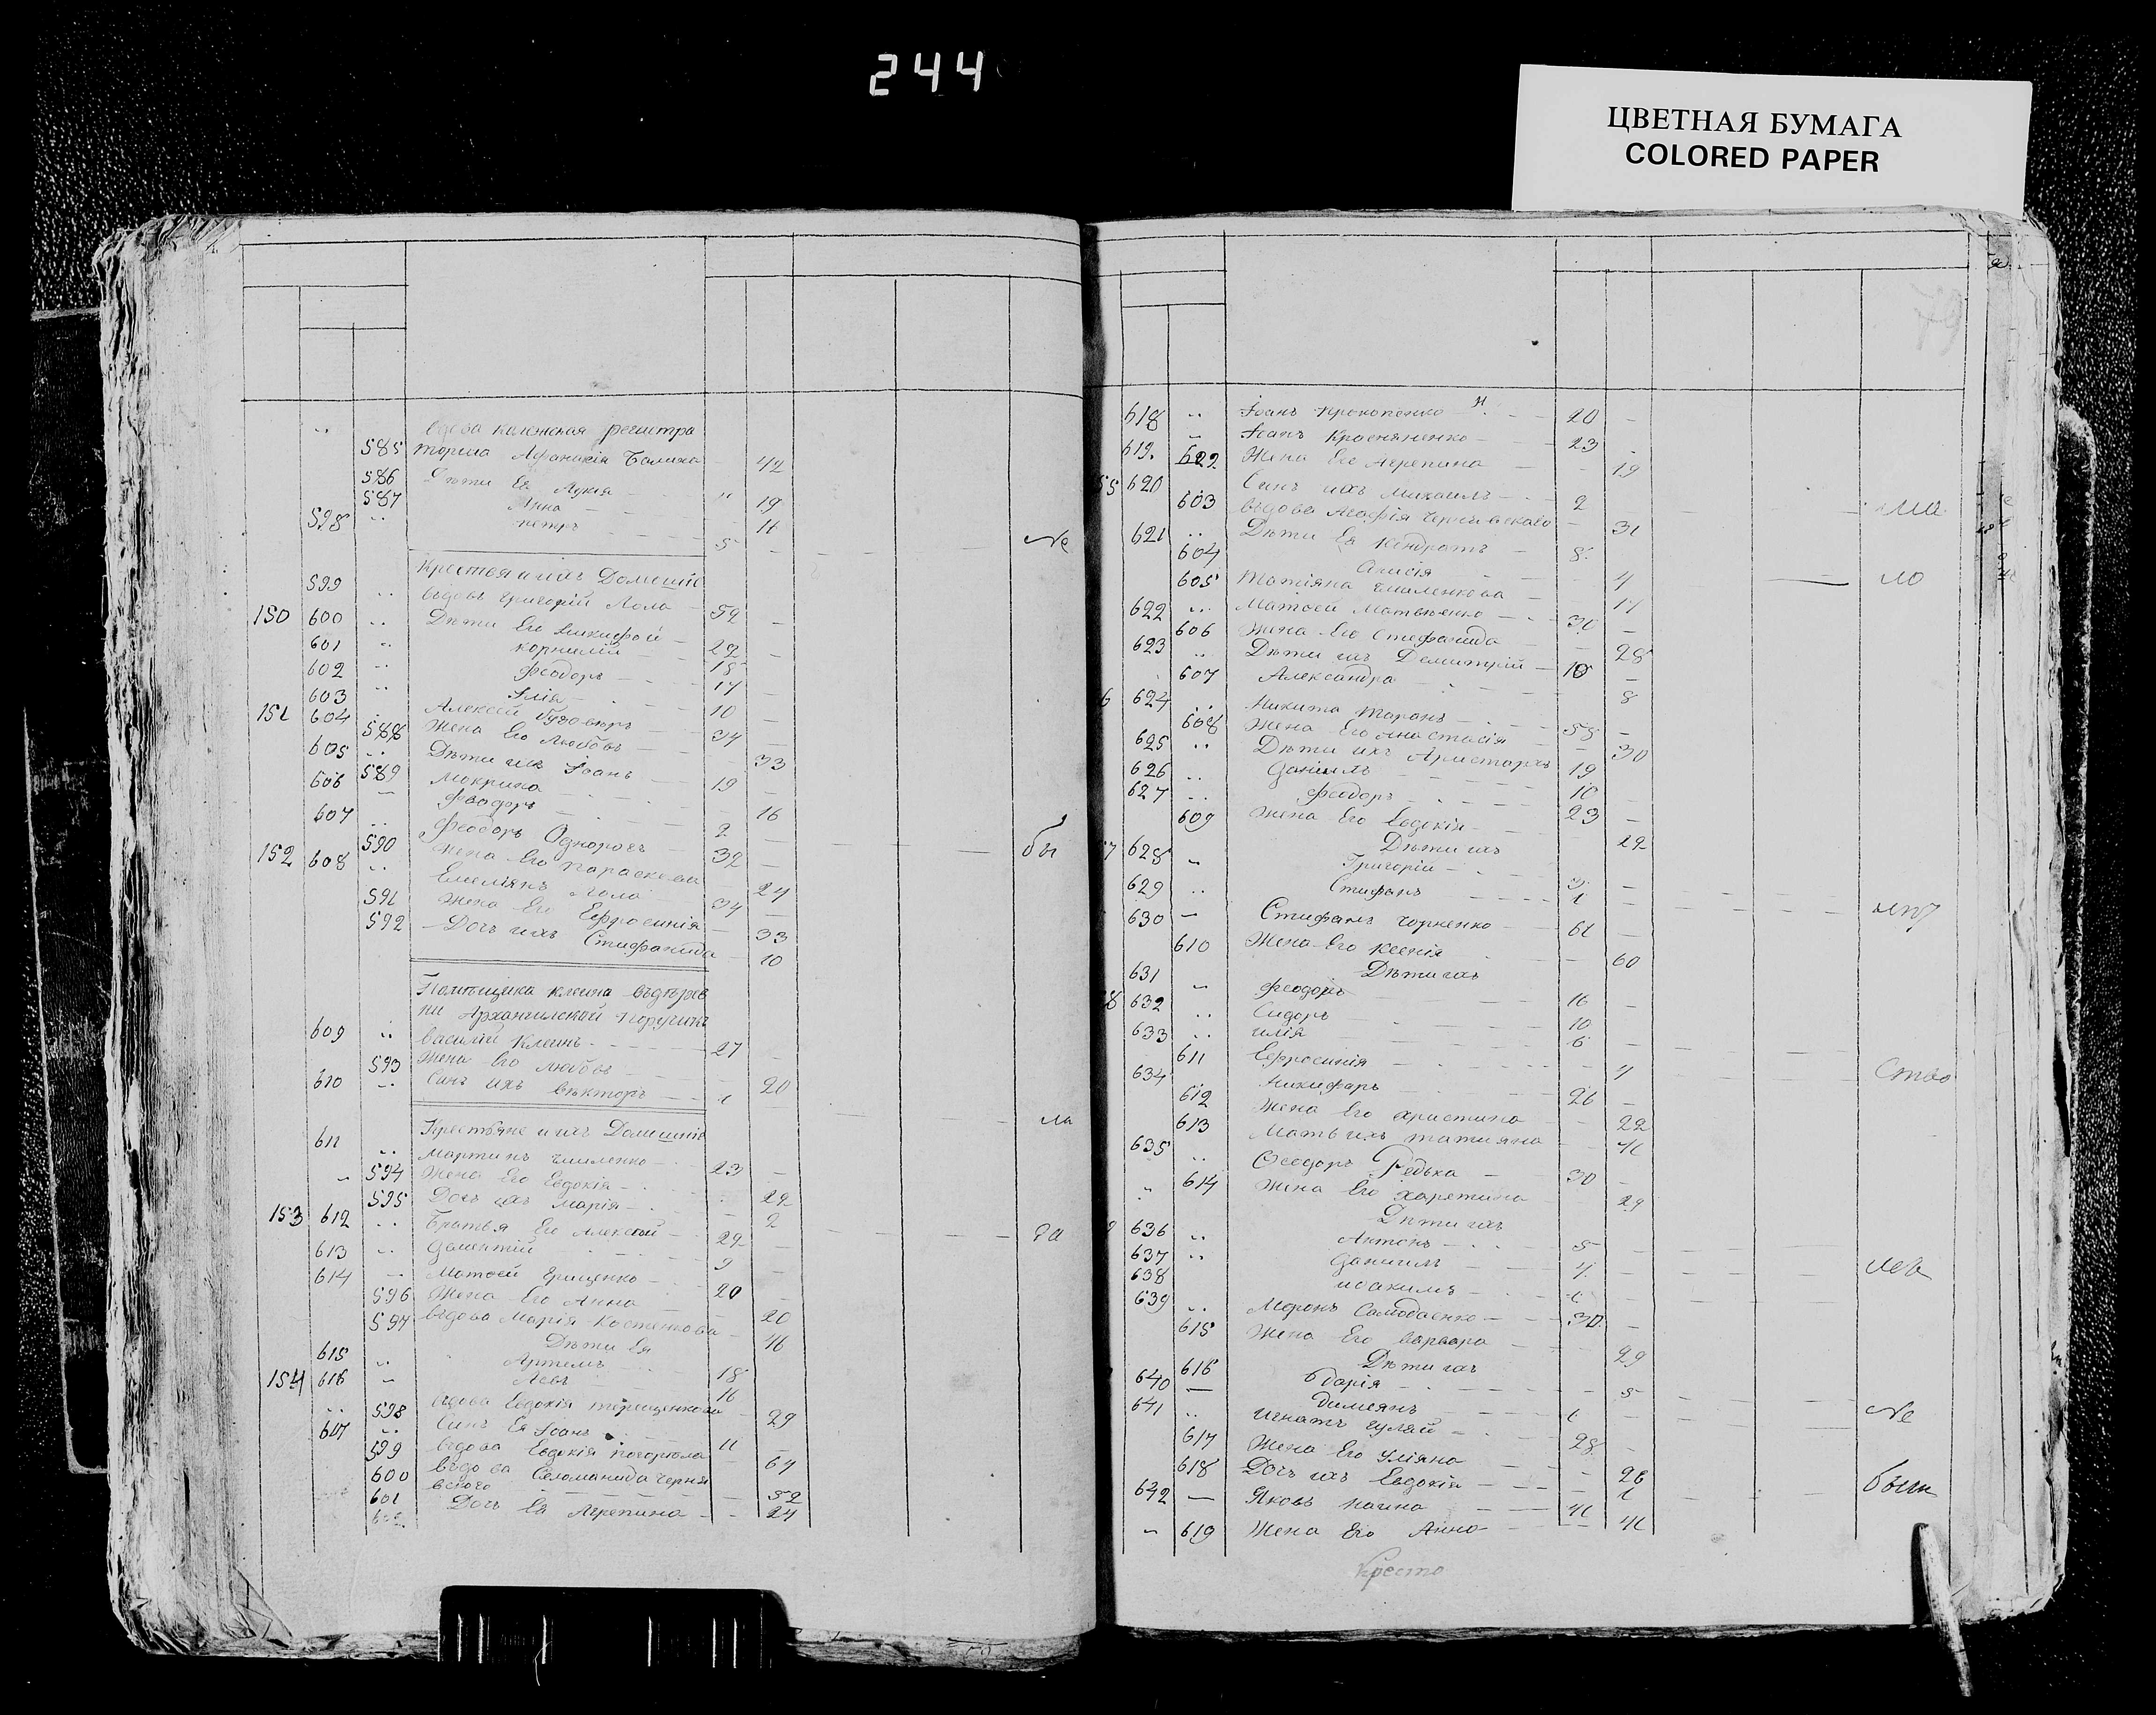 244
ЦВЕТНАЯ БУМАГА
COLORED PAPER
вдова колежская регистра
585 торша Афанасія 42
586 Дѣти Ея Лукія 19
587 Анна 11
598 петръ 5 не
Крестьяни ихъ Домешніе
599 вдовъ григорій Лола 52
150 600 Дѣти Его 22
601 корнилій 18
602 феодоръ 14
603 Илія 10
151 604 Алексѣй 34
588 Жена Его Любовь 33
605 Дѣти ихъ Іоанъ 19
589 Мокрина 16
606 феодоръ 2
607 феодоръ Однорогъ 32 бы
590 Жена Его параскева 24
152 608 Емеліянъ Лола 34
591 Жена Его Ефросинія 33
592 Дочь ихъ Стифанида 10
Помѣщика клеина въдѣрев
ни Архангилской поручикъ
609 василій Клеинъ 27
593 Жена Его любовь 20
610 Синъ ихъ вѣкторъ 1 ли
Крестьяне ихъ Домешніе
611 мартинъ 23
594 Жена Его Евдокія 22
595 Дочь ихъ Марія 2
153 612 Братья Его Алексѣй 22 за
613 9
614 Матоей грищенко 20
596 Жена Его Анна 20
597 въдова Марія Костенкова 46
Дѣти Ея
615 Артемъ 18
154 616 Левъ 16
598 вдова Евдокія терещенкова 29
617 Синъ Ея Іоанъ 11
599 въдова Евдокія 64
600 въдова Соломанида черня
вского 52
601 Дочь Ея Агрепина 24
602
618 Іоанъ прокопенко 20
619 Іоанъ Красняненко 23
622 Жена Его Агрепина 19
55 620 Синъ ихъ михаилъ 2
603 въдова Агафія чернявского 31
621 Дѣти Ея Кондратъ 8
604 Анисія 4 ло
605 Татіяна 14
622 Матоей Матвѣенко 30
606 Жена Его Стефанида 28
623 Дѣти ихъ Демитрій 10
607 Александра 8
6 624 Никита таранъ 58
608 Жена Его Анастасія 30
625 Дѣти ихъ Аристархъ 19
626 Даніилъ 10
627 феодоръ 23
609 Жена Его Евдокія 22
Дѣти ихъ
7 628 Григорій 3
629 Стифанъ 1
630 Стифанъ чорненко 61
610 Жена Его ксенія 60
Дѣти ихъ
631 феодоръ 16
8 632 Сидоръ 10
633 илія 6
611 Ефросинія 4 ство
634 Никифоръ 26
612 Жена Его христина 22
613 Мать ихъ татияна
635 Феодоръ Редька 30
614 Жена Его харетина 29
Дѣти ихъ
636 Антонъ 5
637 Даніилъ 4 лев
638 иоакимъ 1
639 Миронъ Самодаенко 30
615 Жена Его варвара 29
Дѣти ихъ
616 дарія 5
640 димеянъ не
641 игнатъ гулай 28
617 Жена Его Уліяна 26
618 Дочь ихъ Евдокія 1 были
642 Яковъ 41
619 Жена Его Анна 41
Кресто